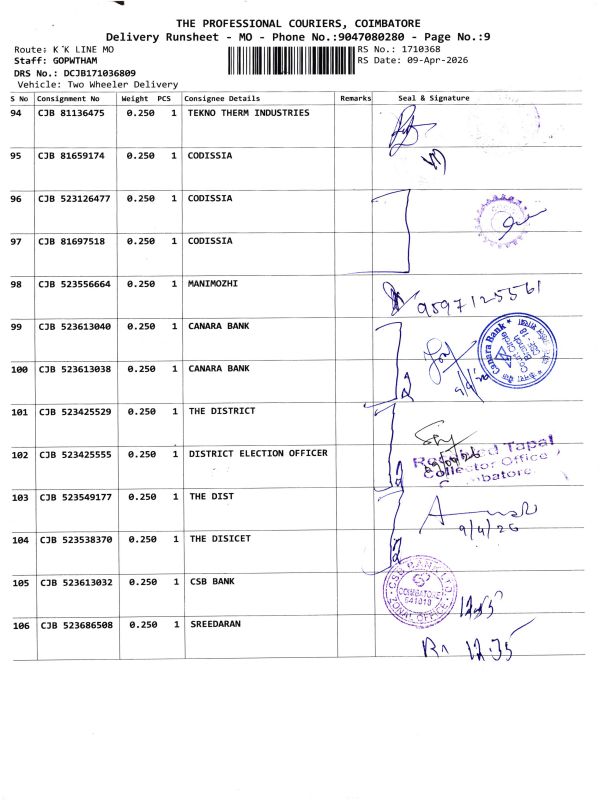 THE PROFESSIONAL COURIERS, COIMBATORE
Delivery Runsheet - MO - Phone No.:9047080280 - Page No.:9
Route: K K LINE MO
RS No.: 1710368
Staff: GOPWTHAM
RS Date: 09-Apr-2026
DRS No.: DCJB171036809
Vehicle: Two Wheeler Delivery
S No Consignment No Weight PCS Consignee Details Remarks Seal & Signature
94 CJB 81136475 0.250 1 TEKNO THERM INDUSTRIES
95 CJB 81659174 0.250 1 CODISSIA
96 CJB 523126477 0.250 1 CODISSIA
97 CJB 81697518 0.250 1 CODISSIA
98 CJB 523556664 0.250 1 MANIMOZHI 9597125561
99 CJB 523613040 0.250 1 CANARA BANK
Canara Bank
100 CJB 523613038 0.250 1 CANARA BANK
101 CJB 523425529 0.250 1 THE DISTRICT
102 CJB 523425555 0.250 1 DISTRICT ELECTION OFFICER
Received Tapal
Collector Office
Coimbatore
103 CJB 523549177 0.250 1 THE DIST
9/4/26
104 CJB 523538370 0.250 1 THE DISICET
105 CJB 523613032 0.250 1 CSB BANK
CSB BANK LTD.
COIMBATORE
641018
ZONAL OFFICE
106 CJB 523686508 0.250 1 SREEDARAN
12.35